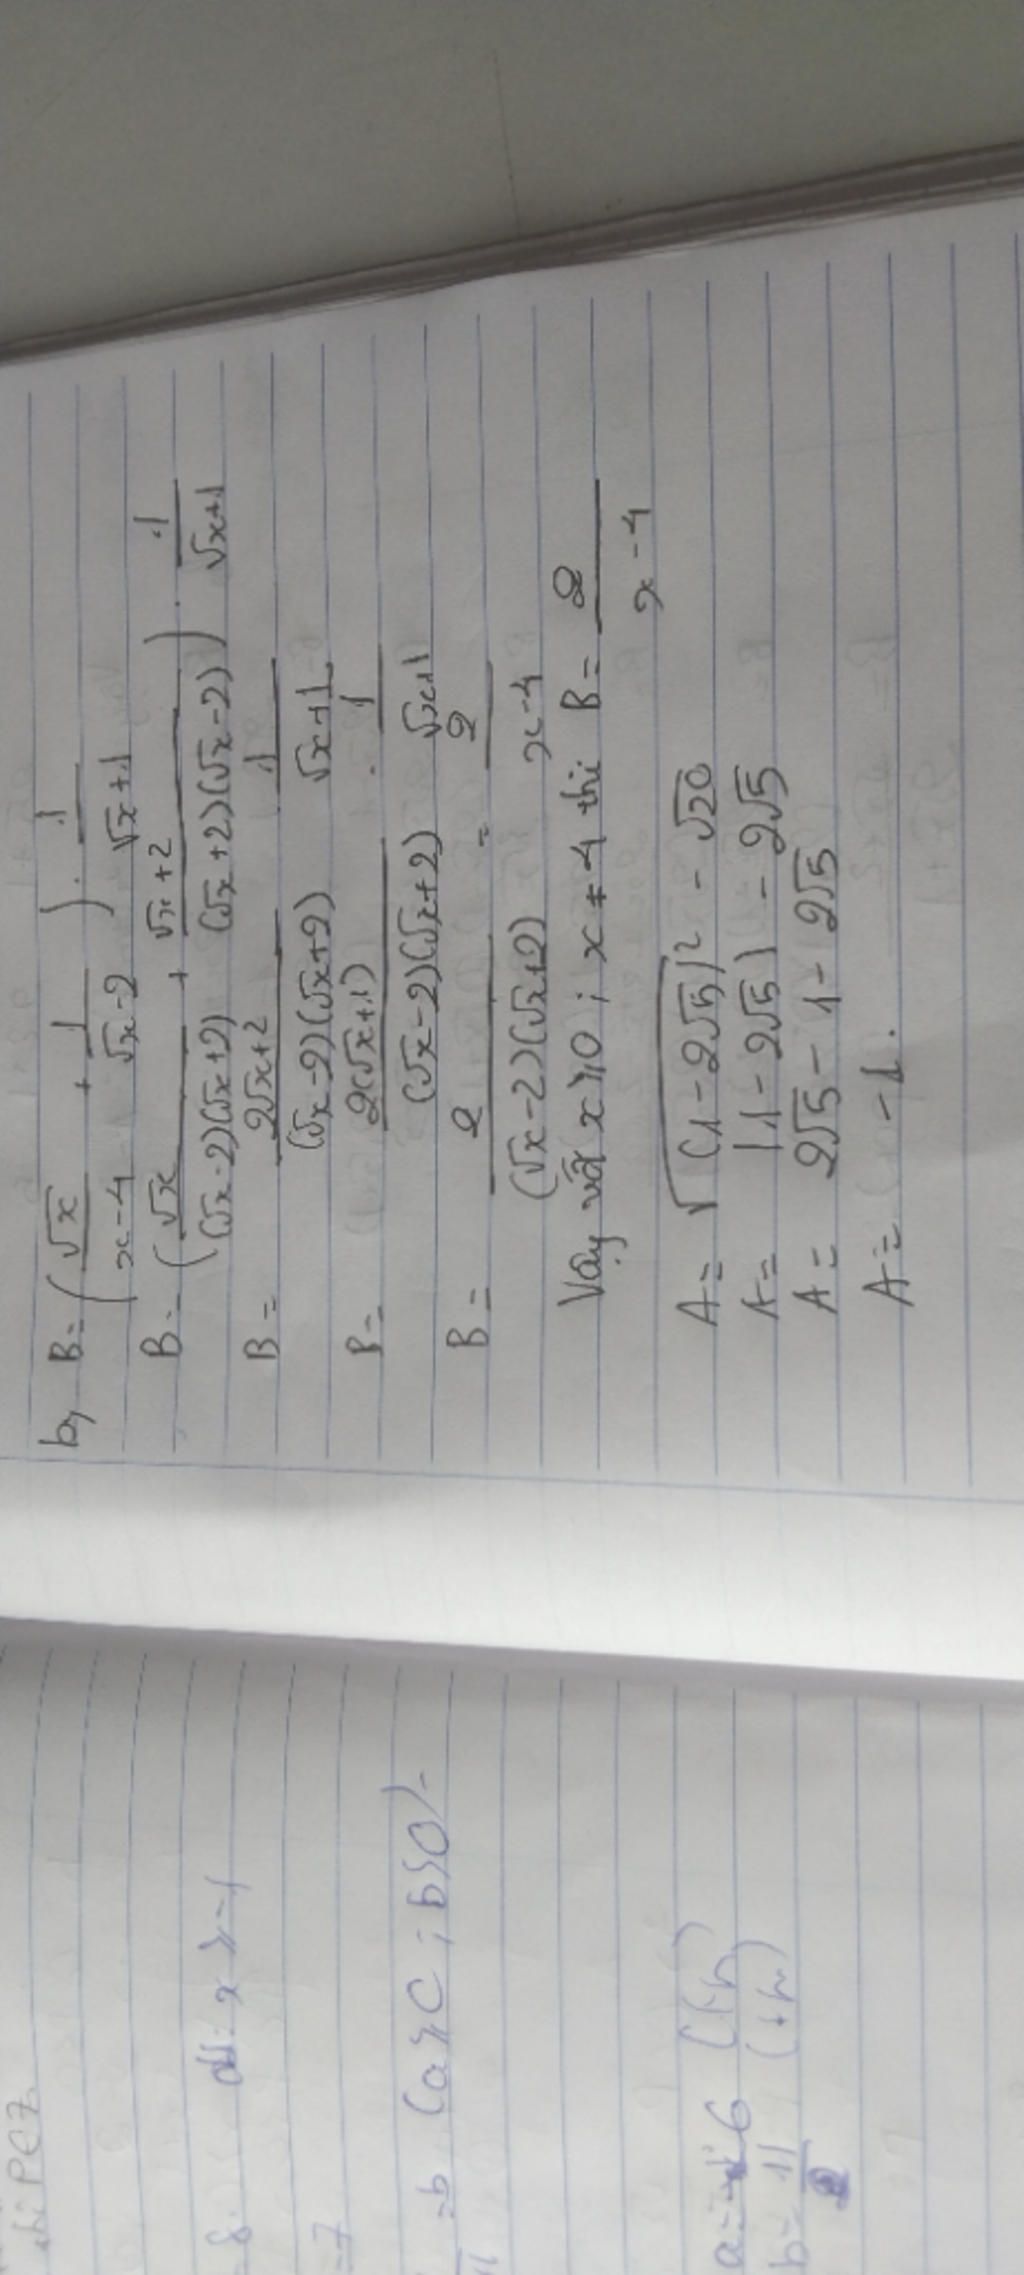 b, B = ( √x / x-4 + 1 / √x-2 ) . 1 / √x+1
B = ( √x / (√x-2)(√x+2) + √x+2 / (√x+2)(√x-2) ) . 1 / √x+1
B = 2√x+2 / (√x-2)(√x+2) . 1 / √x+1
B = 2(√x+1) / (√x-2)(√x+2) . 1 / √x+1
B = 2 / (√x-2)(√x+2) = 2 / x-4
Vậy với x ≥ 0 ; x ≠ 4 thì B = 2 / x-4
A = √(1-2√5)² - √20
A = |1-2√5| - 2√5
A = 2√5 - 1 - 2√5
A = -1.
8.
đk: x ≥ -1
=7
=b (a ≥ 0 ; b ≥ 0)
a = 6 (th)
b = 11 (th)